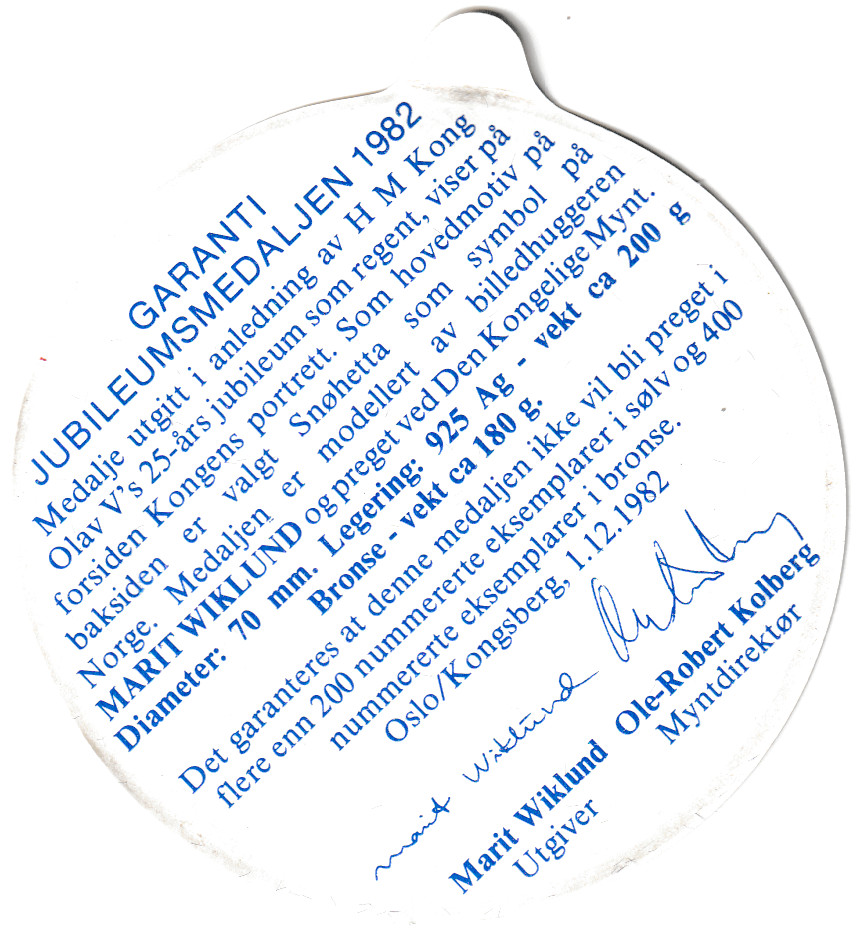 GARANTI
JUBILEUMSMEDALJEN 1982
Medalje utgitt i anledning av H M Kong
Olav V's 25-års jubileum som regent, viser på
forsiden Kongens portrett. Som hovedmotiv på
baksiden er valgt Snøhetta som symbol på
Norge. Medaljen er modellert av billedhuggeren
MARIT WIKLUND og preget ved Den Kongelige Mynt.
Diameter: 70 mm. Legering: 925 Ag - vekt ca 200 g
Bronse - vekt ca 180 g.
Det garanteres at denne medaljen ikke vil bli preget i
flere enn 200 nummererte eksemplarer i sølv og 400
nummererte eksemplarer i bronse.
Oslo/Kongsberg, 1.12.1982
marit Wiklund
Marit Wiklund Ole-Robert Kolberg
Utgiver Myntdirektør